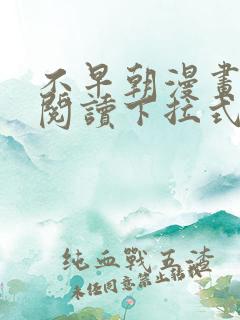 不早朝漫畫
閱讀下拉式
純血戰五渣
未任同意禁止轉載